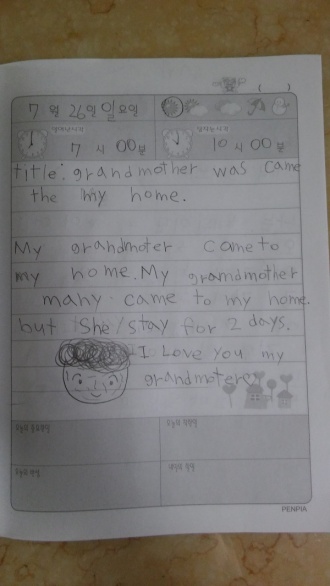 7월 26일 일요일 ( )
일어난시각 잠자는시각
7시 00분 10시 00분
title: grandmother was came
the my home.
My grandmoter came to
my home. My grandmother
many came to my home.
but She stay for 2 days.
I Love you my
grandmoter
오늘의 중요한일 오늘의 착한일
오늘의 반성 내일의 할일
PENPIA